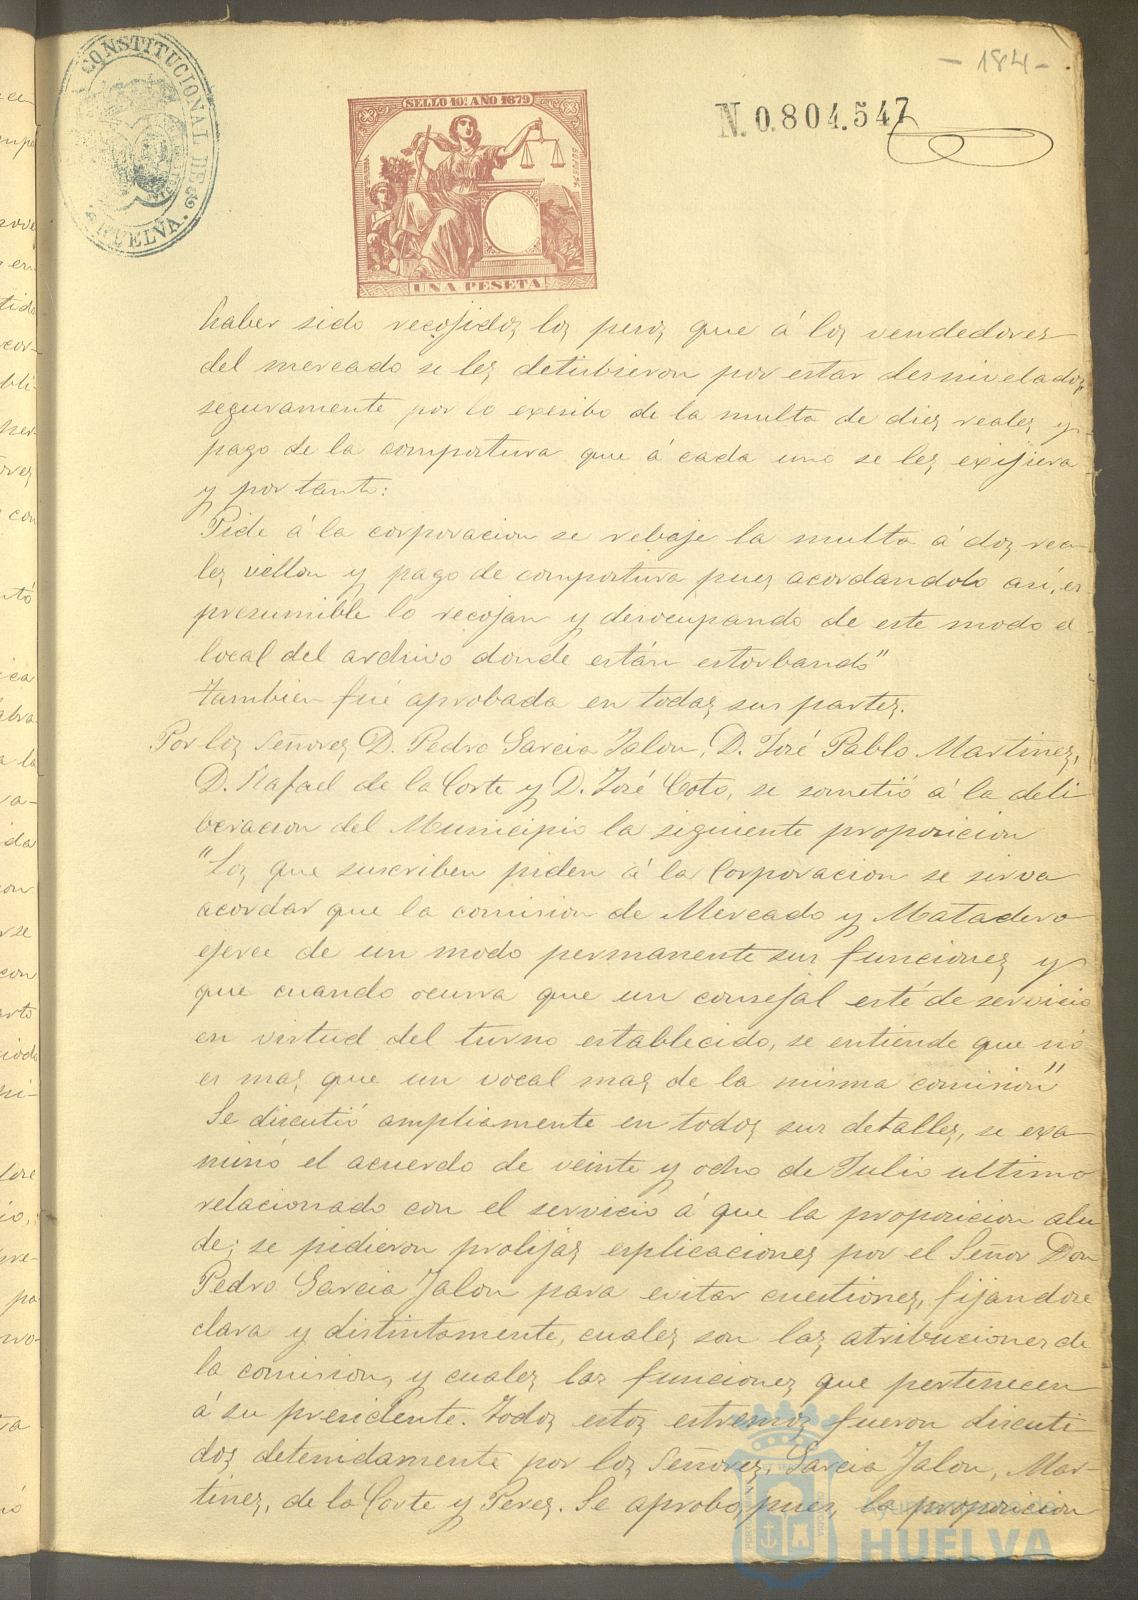 - 184 -
CONSTITUCIONAL DE HUELVA.
SELLO 10º AÑO 1879
N. 0.804.547
UNA PESETA
haber sido recojidos los pesos que á los vendedores
del mercado se les detubieron por estar desnivelados,
seguramente por lo exesibo de la multa de diez reales y
pago de la compostura que á cada uno se les exijiera
y por tanto:
Pide á la corporacion se rebaje la multa á dos rea
les vellon y pago de compostura pues acordandolo asi, es
presumible lo recojan y desocupando de este modo el
local del archivo donde están estorbando"
Tambien fué aprobada en todas sus partes.
Por los Señores D. Pedro Garcia Jalon, D. José Pablo Martinez,
D. Rafael de la Corte y D. José Coto, se sometió á la deli
beracion del Municipio la siguiente proposicion
"Los que suscriben piden á la Corporacion se sirva
acordar que la comision de Mercado y Matadero
ejerce de un modo permanente sus funciones y
que cuando ocurra que un consejal esté de servicio
en virtud del turno establecido, se entiende que nó
es mas que un vocal mas de la misma comision"
Se discutió ampliamente en todos sus detalles, se exa
minó el acuerdo de veinte y ocho de Julio ultimo
relacionado con el servicio á que la proposicion alu
de; se pidieron prolijas esplicaciones por el Señor Don
Pedro Garcia Jalon para evitar cuestiones, fijandose
clara y distintamente, cuales son las atribuciones de
la comision, y cuales las funciones que pertenecen
á su presidente. Todos estos estremos fueron discuti
dos detenidamente por los Señores, Garcia Jalon, Mar-
tinez, de la Corte y Perez. Se aprobó, pues, la proposicion
Ayuntamiento de
HUELVA